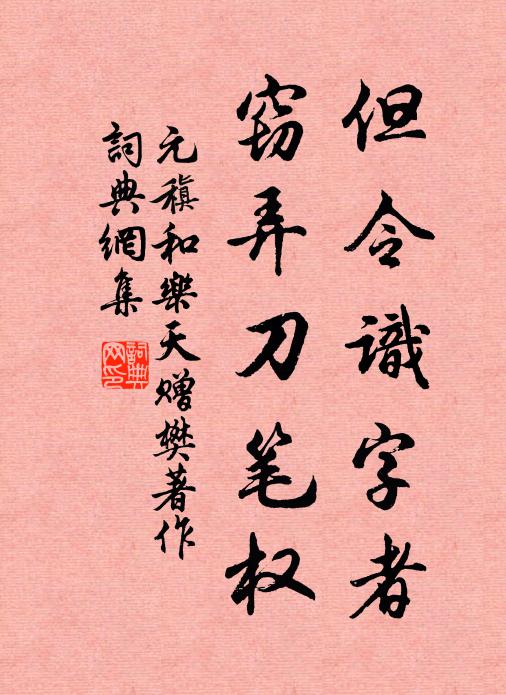 但令識字者
窃弄刀笔权
元稹和樂天赠樊著作
詞典網集
詞典网印